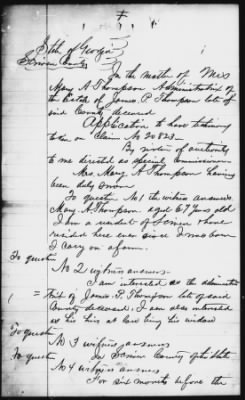 State of Georgia
Screven County
In the matter of Mrs
Mary A Thompson Administratrix of
the Estate of James P. Thompson late of
said County deceased
Application to have testimony
taken on Claim No 20823
By virtue of authority
to me directed as special commissioner
Mrs. Mary A Thompson having
been duly sworn
To question No 1 the witness answers
Mary A Thompson aged 67 years old
I am a resident of Screven & have
resided here ever since I was born
I carry on a farm.
To question
No 2 witness answers
I am interested as the administra
= trix of James P. Thompson late of said
County deceased, I am also interested
as his heir at law being his widow
To question
No 3 witness answers
To question
In Screven County of this State
No 4 witness answers
For six months before the